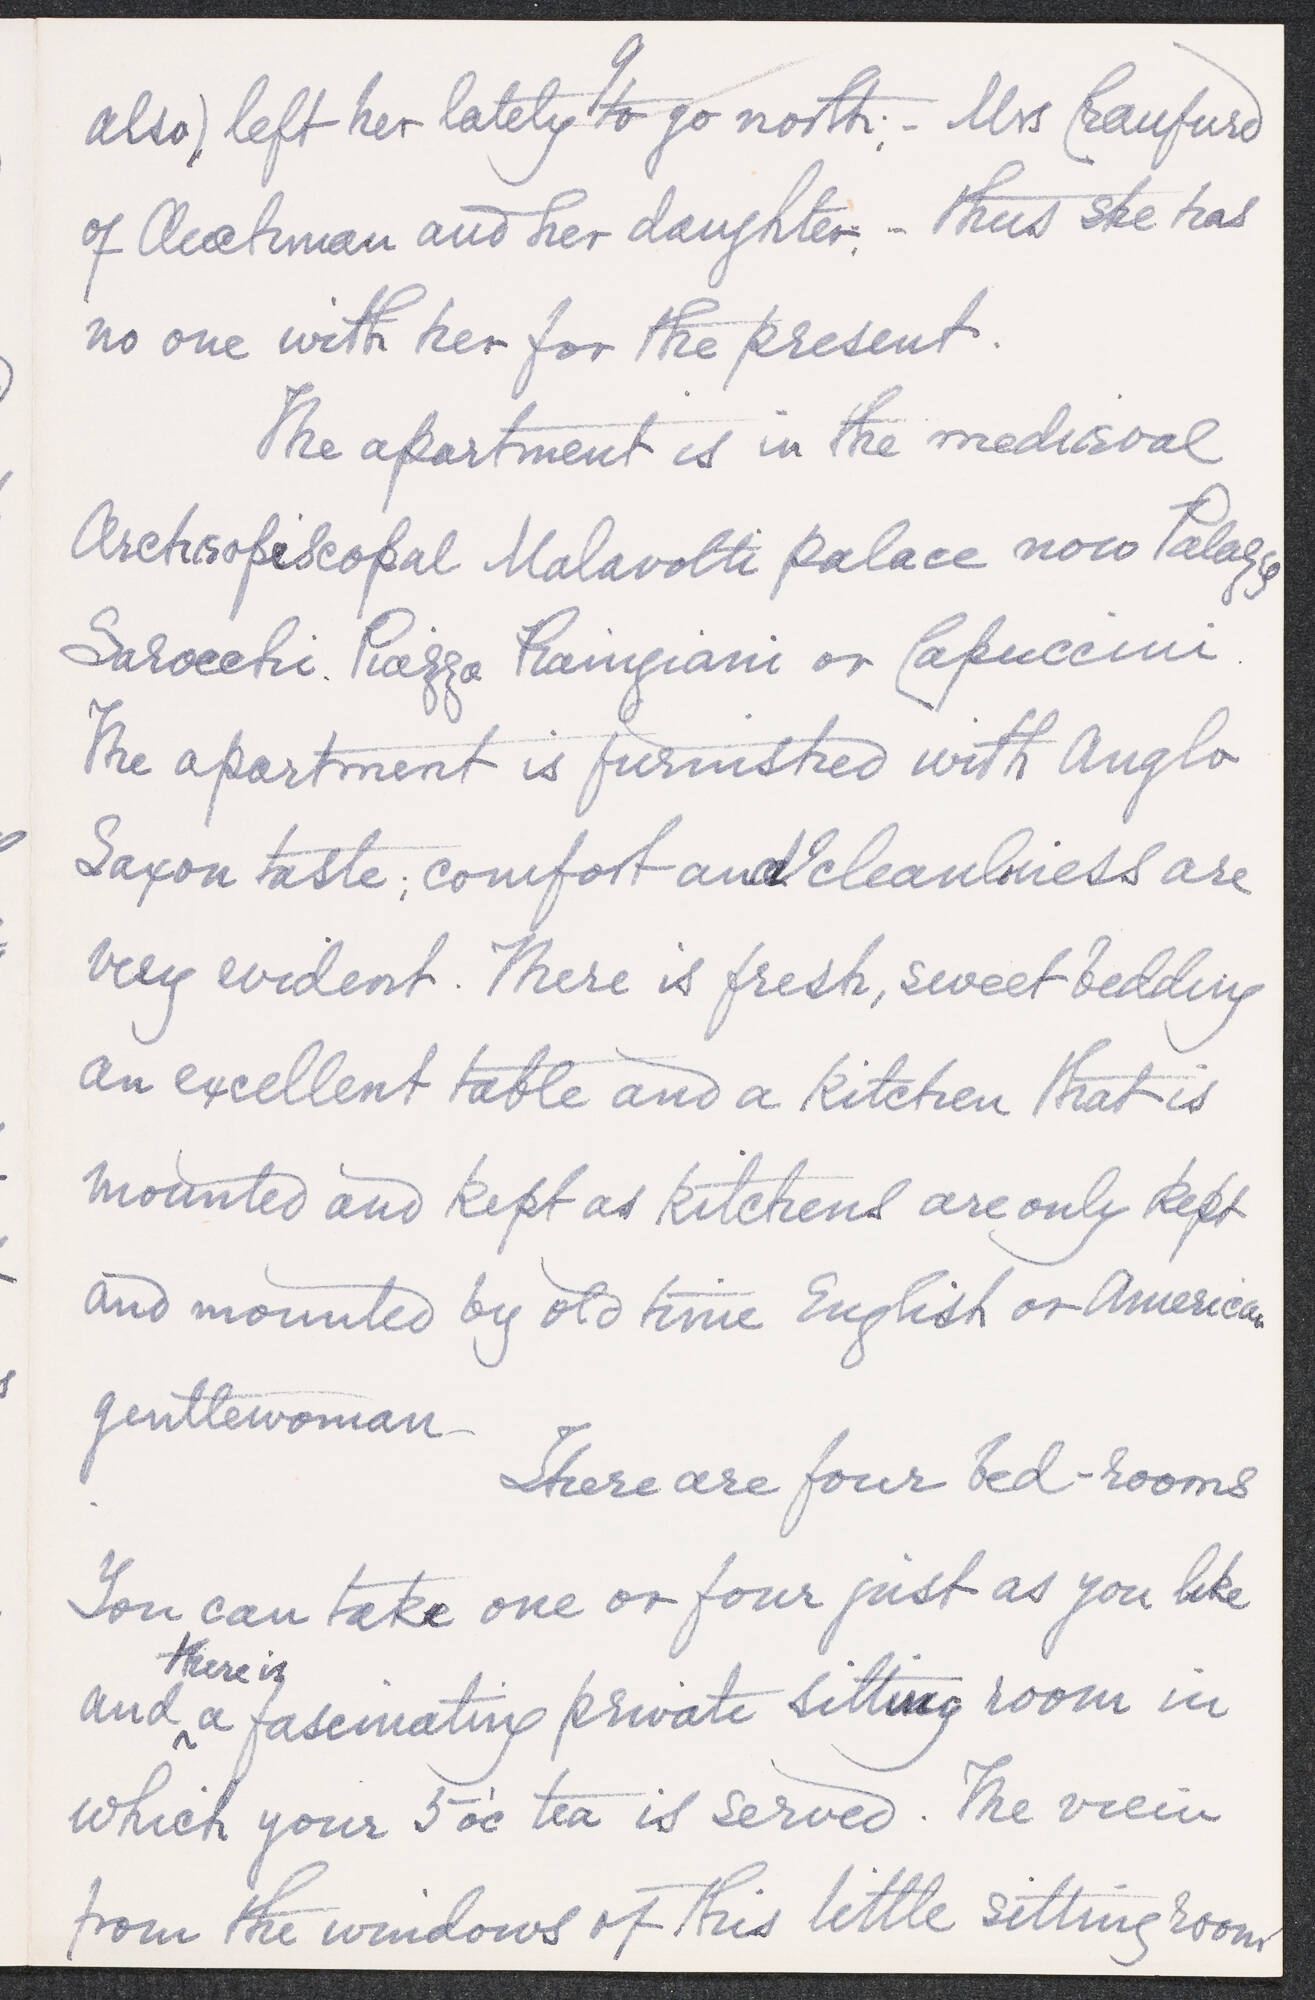 9
also) left her lately to go north; - Mrs Craufurd
of Auchman and her daughter; - thus she has
no one with her for the present.
The apartment is in the mediæval
Archæopiscopal Malavolti palace now Palazzo
Sarocchi. Piazza or Capuccini.
The apartment is furnished with Anglo
Saxon taste; comfort and cleanliness are
very evident. There is fresh, sweet bedding
an excellent table and a kitchen that is
mounted and kept as kitchens are only kept
and mounted by old time English or American
gentlewoman -
There are four bed-rooms
You can take one or four just as you like
and there is a fascinating private sitting room in
which your 5 o'c tea is served. The view
from the windows of this little sitting room